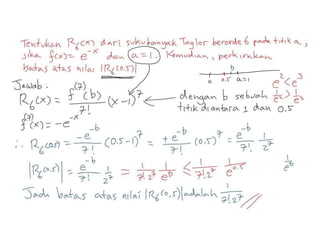 Tentukan R₆(x) dari suku banyak Taylor berorde 6 pada titik a,
jika f(x) = e⁻ˣ dan a=1. Kemudian, perkirakan
batas atas nilai |R₆(0.5)|
b
0 0.5 a=1
Jawab:
R₆(x) = f⁽⁷⁾(b)/7! (x-1)⁷
e² < e³
1/e² > 1/e³
dengan b sebuah
titik diantara 1 dan 0.5
f⁽⁷⁾(x) = -e⁻ˣ
∴ R₆(0.5) = -e⁻ᵇ/7! (0.5-1)⁷ = +e⁻ᵇ/7! (0.5)⁷ = e⁻ᵇ/7! 1/2⁷
|R₆(0.5)| = e⁻ᵇ/7! 1/2⁷ = 1/7!2⁷ 1/eᵇ ≤ 1/7!2⁷ 1/e⁰·⁵
1/e⁰
Jadi batas atas nilai |R₆(0.5)| adalah 1/7!2⁷